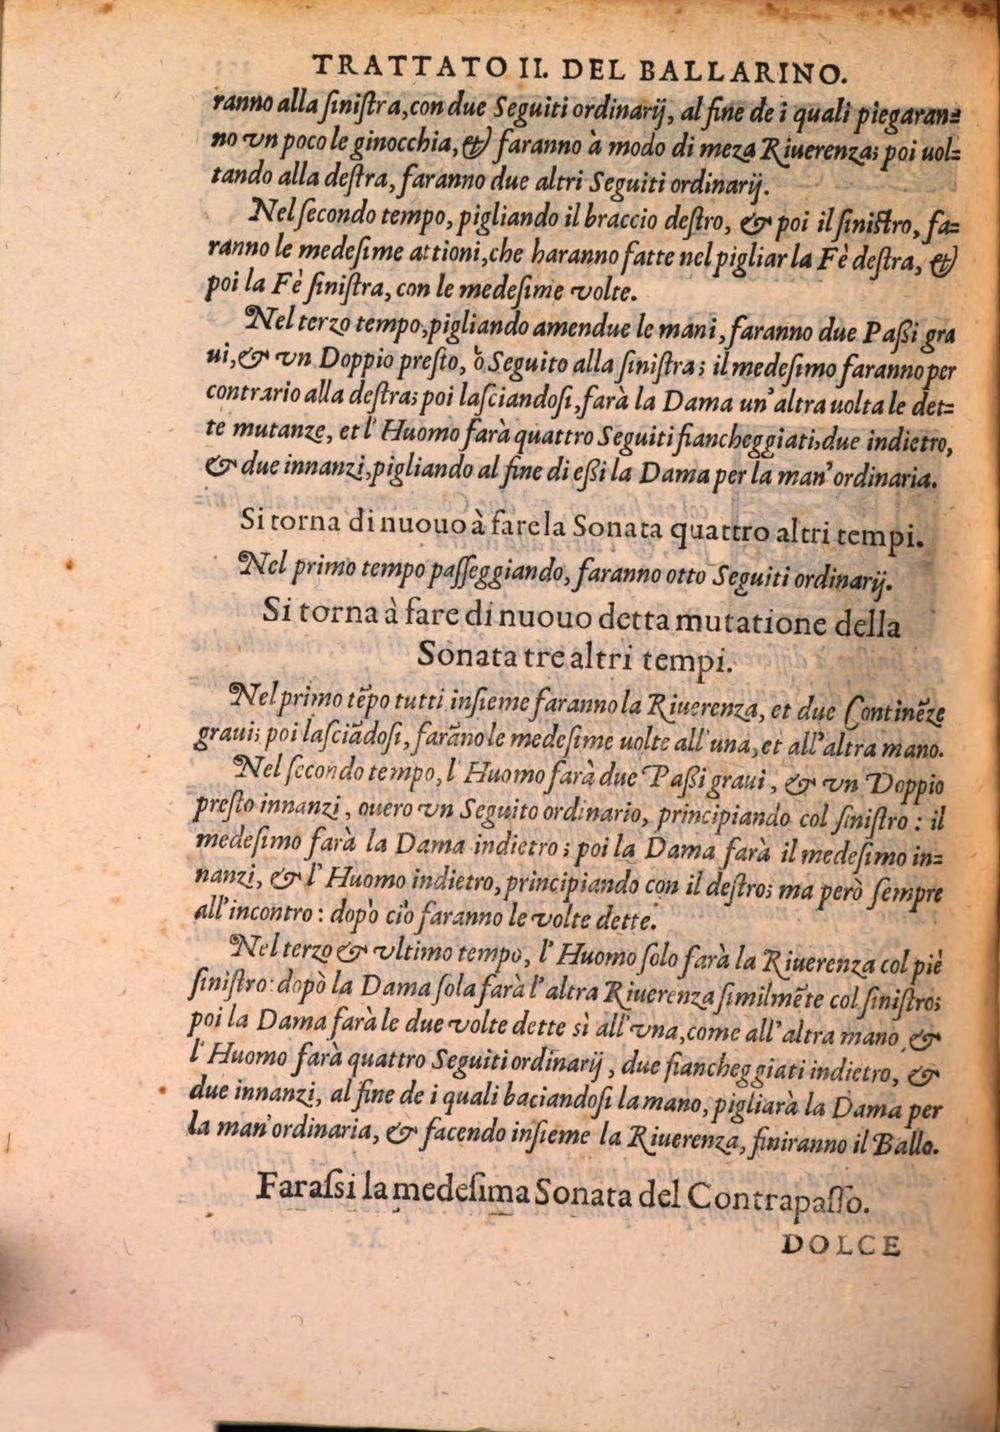 TRATTATO II. DEL BALLARINO.
ranno alla ſiniſtra, con due Seguiti ordinarij, al fine de i quali piegaran=
no vn poco le ginocchia, & faranno à modo di meza Riuerenza; poi uol=
tando alla deſtra, faranno due altri Seguiti ordinarij.
Nel ſecondo tempo, pigliando il braccio deſtro, & poi il ſiniſtro, fa=
ranno le medeſime attioni, che haranno fatte nel pigliar la Fè deſtra, &
poi la Fè ſiniſtra, con le medeſime volte.
Nel terzo tempo, pigliando amendue le mani, faranno due Paßi gra
ui, & vn Doppio preſto, ò Seguito alla ſiniſtra; il medeſimo faranno per
contrario alla deſtra; poi laſciandoſi, farà la Dama un'altra uolta le det=
te mutanze, et l'Huomo farà quattro Seguiti fiancheggiati, due indietro,
& due innanzi, pigliando al fine di eßi la Dama per la man'ordinaria.
Si torna di nuouo à fare la Sonata quattro altri tempi.
Nel primo tempo paſſeggiando, faranno otto Seguiti ordinarij.
Si torna à fare di nuouo detta mutatione della
Sonata tre altri tempi.
Nel primo tẽpo tutti inſieme faranno la Riuerenza, et due Continẽze
graui; poi laſciãdoſi, farãno le medeſime uolte all'una, et all'altra mano.
Nel ſecondo tempo, l'Huomo farà due Paßi graui, & vn Doppio
preſto innanzi, ouero vn Seguito ordinario, principiando col ſiniſtro: il
medeſimo farà la Dama indietro; poi la Dama farà il medeſimo in=
nanzi, & l'Huomo indietro, principiando con il deſtro; ma però ſempre
all'incontro: dopò ciò faranno le volte dette.
Nel terzo & vltimo tempo, l'Huomo ſolo farà la Riuerenza col piè
ſiniſtro: dopò la Dama ſola farà l'altra Riuerenza ſimilmẽte col ſiniſtro;
poi la Dama farà le due volte dette sì all'vna, come all'altra mano, &
l'Huomo farà quattro Seguiti ordinarij, due fiancheggiati indietro, &
due innanzi, al fine de i quali baciandoſi la mano, pigliarà la Dama per
la man'ordinaria, & facendo inſieme la Riuerenza, finiranno il Ballo.
Faraſsi la medeſima Sonata del Contrapaſſo.
DOLCE